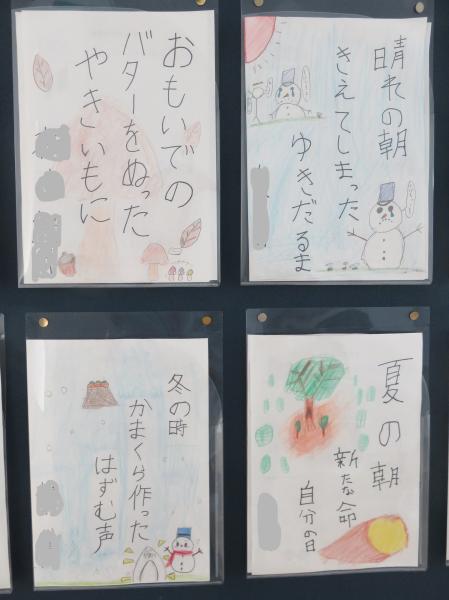 おもいでの
バターをぬった
やきいもに
晴れの朝
きえてしまった
ゆきだるま
冬の時
かまくら作った
はずむ声
夏の朝
新たな命
自分の日